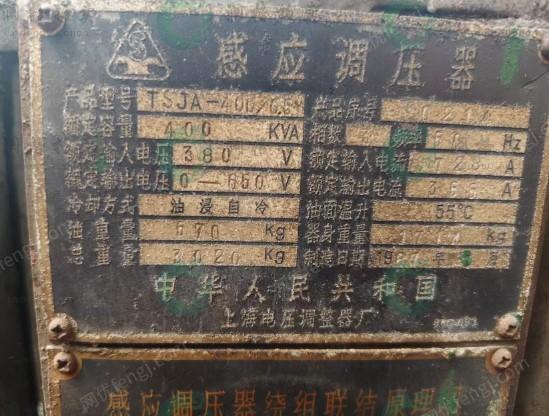 感应调压器
产品型号 TSJA-400/0.5 产品序号
额定容量 400 KVA 相数 3 频率 50 Hz
额定输入电压 380 V 额定输入电流 728 A
额定输出电压 0-650 V 额定输出电流 355 A
冷却方式 油浸自冷 油面温升 55℃
油重量 570 Kg 器身重量 Kg
总重量 3020 Kg 制造日期 19 年 8 月
中华人民共和国
上海电压调整器厂
感应调压器绕组联结原理图